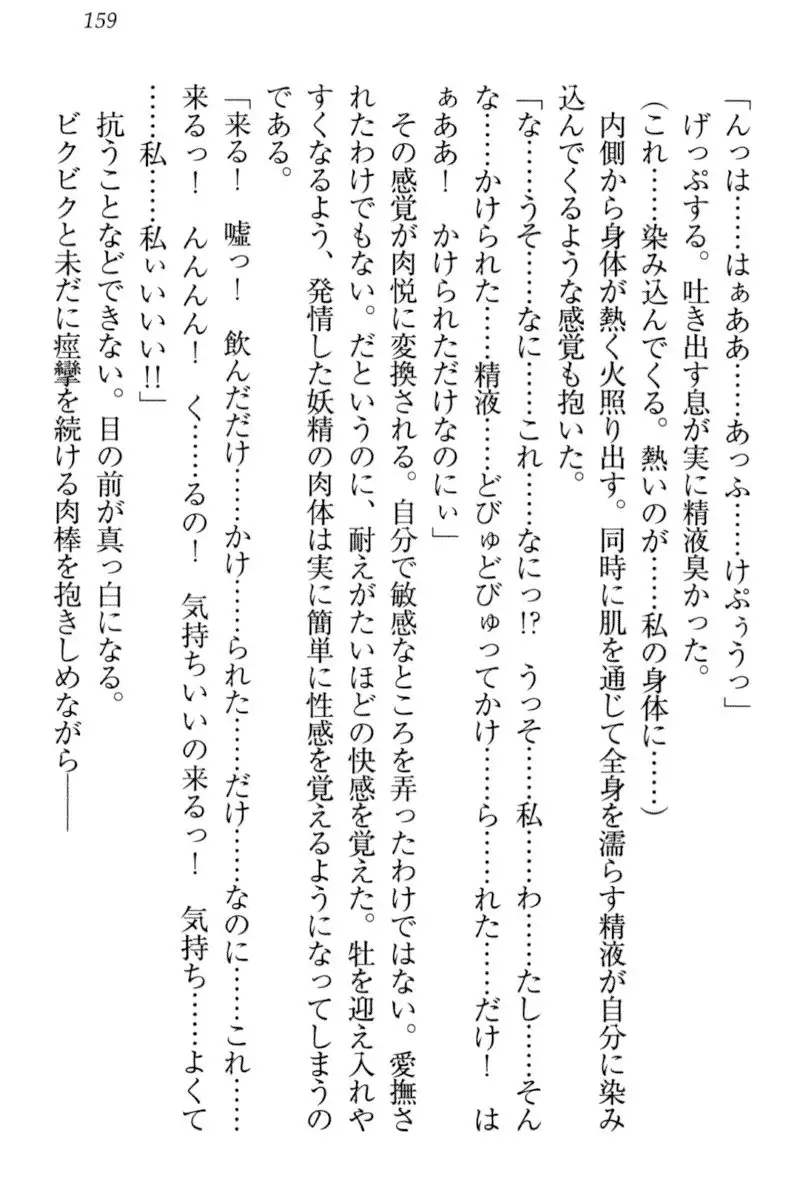 159
「んっは……はぁああ……あっふ……けぷぅうっ」
げっぷする。吐き出す息が実に精液臭かった。
(これ……染み込んでくる。熱いのが……私の身体に……)
内側から身体が熱く火照り出す。同時に肌を通じて全身を濡らす精液が自分に染み
込んでくるような感覚も抱いた。
「な……うそ……なに……これ……なにっ!? うっそ……私……わ……たし……そん
な……かけられた……精液……どびゅどびゅってかけ……ら……れた……だけ! は
ぁああ! かけられただけなのにぃ」
その感覚が肉悦に変換される。自分で敏感なところを弄ったわけではない。愛撫さ
れたわけでもない。だというのに、耐えがたいほどの快感を覚えた。牡を迎え入れや
すくなるよう、発情した妖精の肉体は実に簡単に性感を覚えるようになってしまうの
である。
「来る! 嘘っ! 飲んだだけ……かけ……られた……だけ……なのに……これ……
来るっ! んんんん! く……るの! 気持ちいいの来るっ! 気持ち……よくて
……私……私ぃいいい!!」
抗うことなどできない。目の前が真っ白になる。
ビクビクと未だに痙攣を続ける肉棒を抱きしめながら――